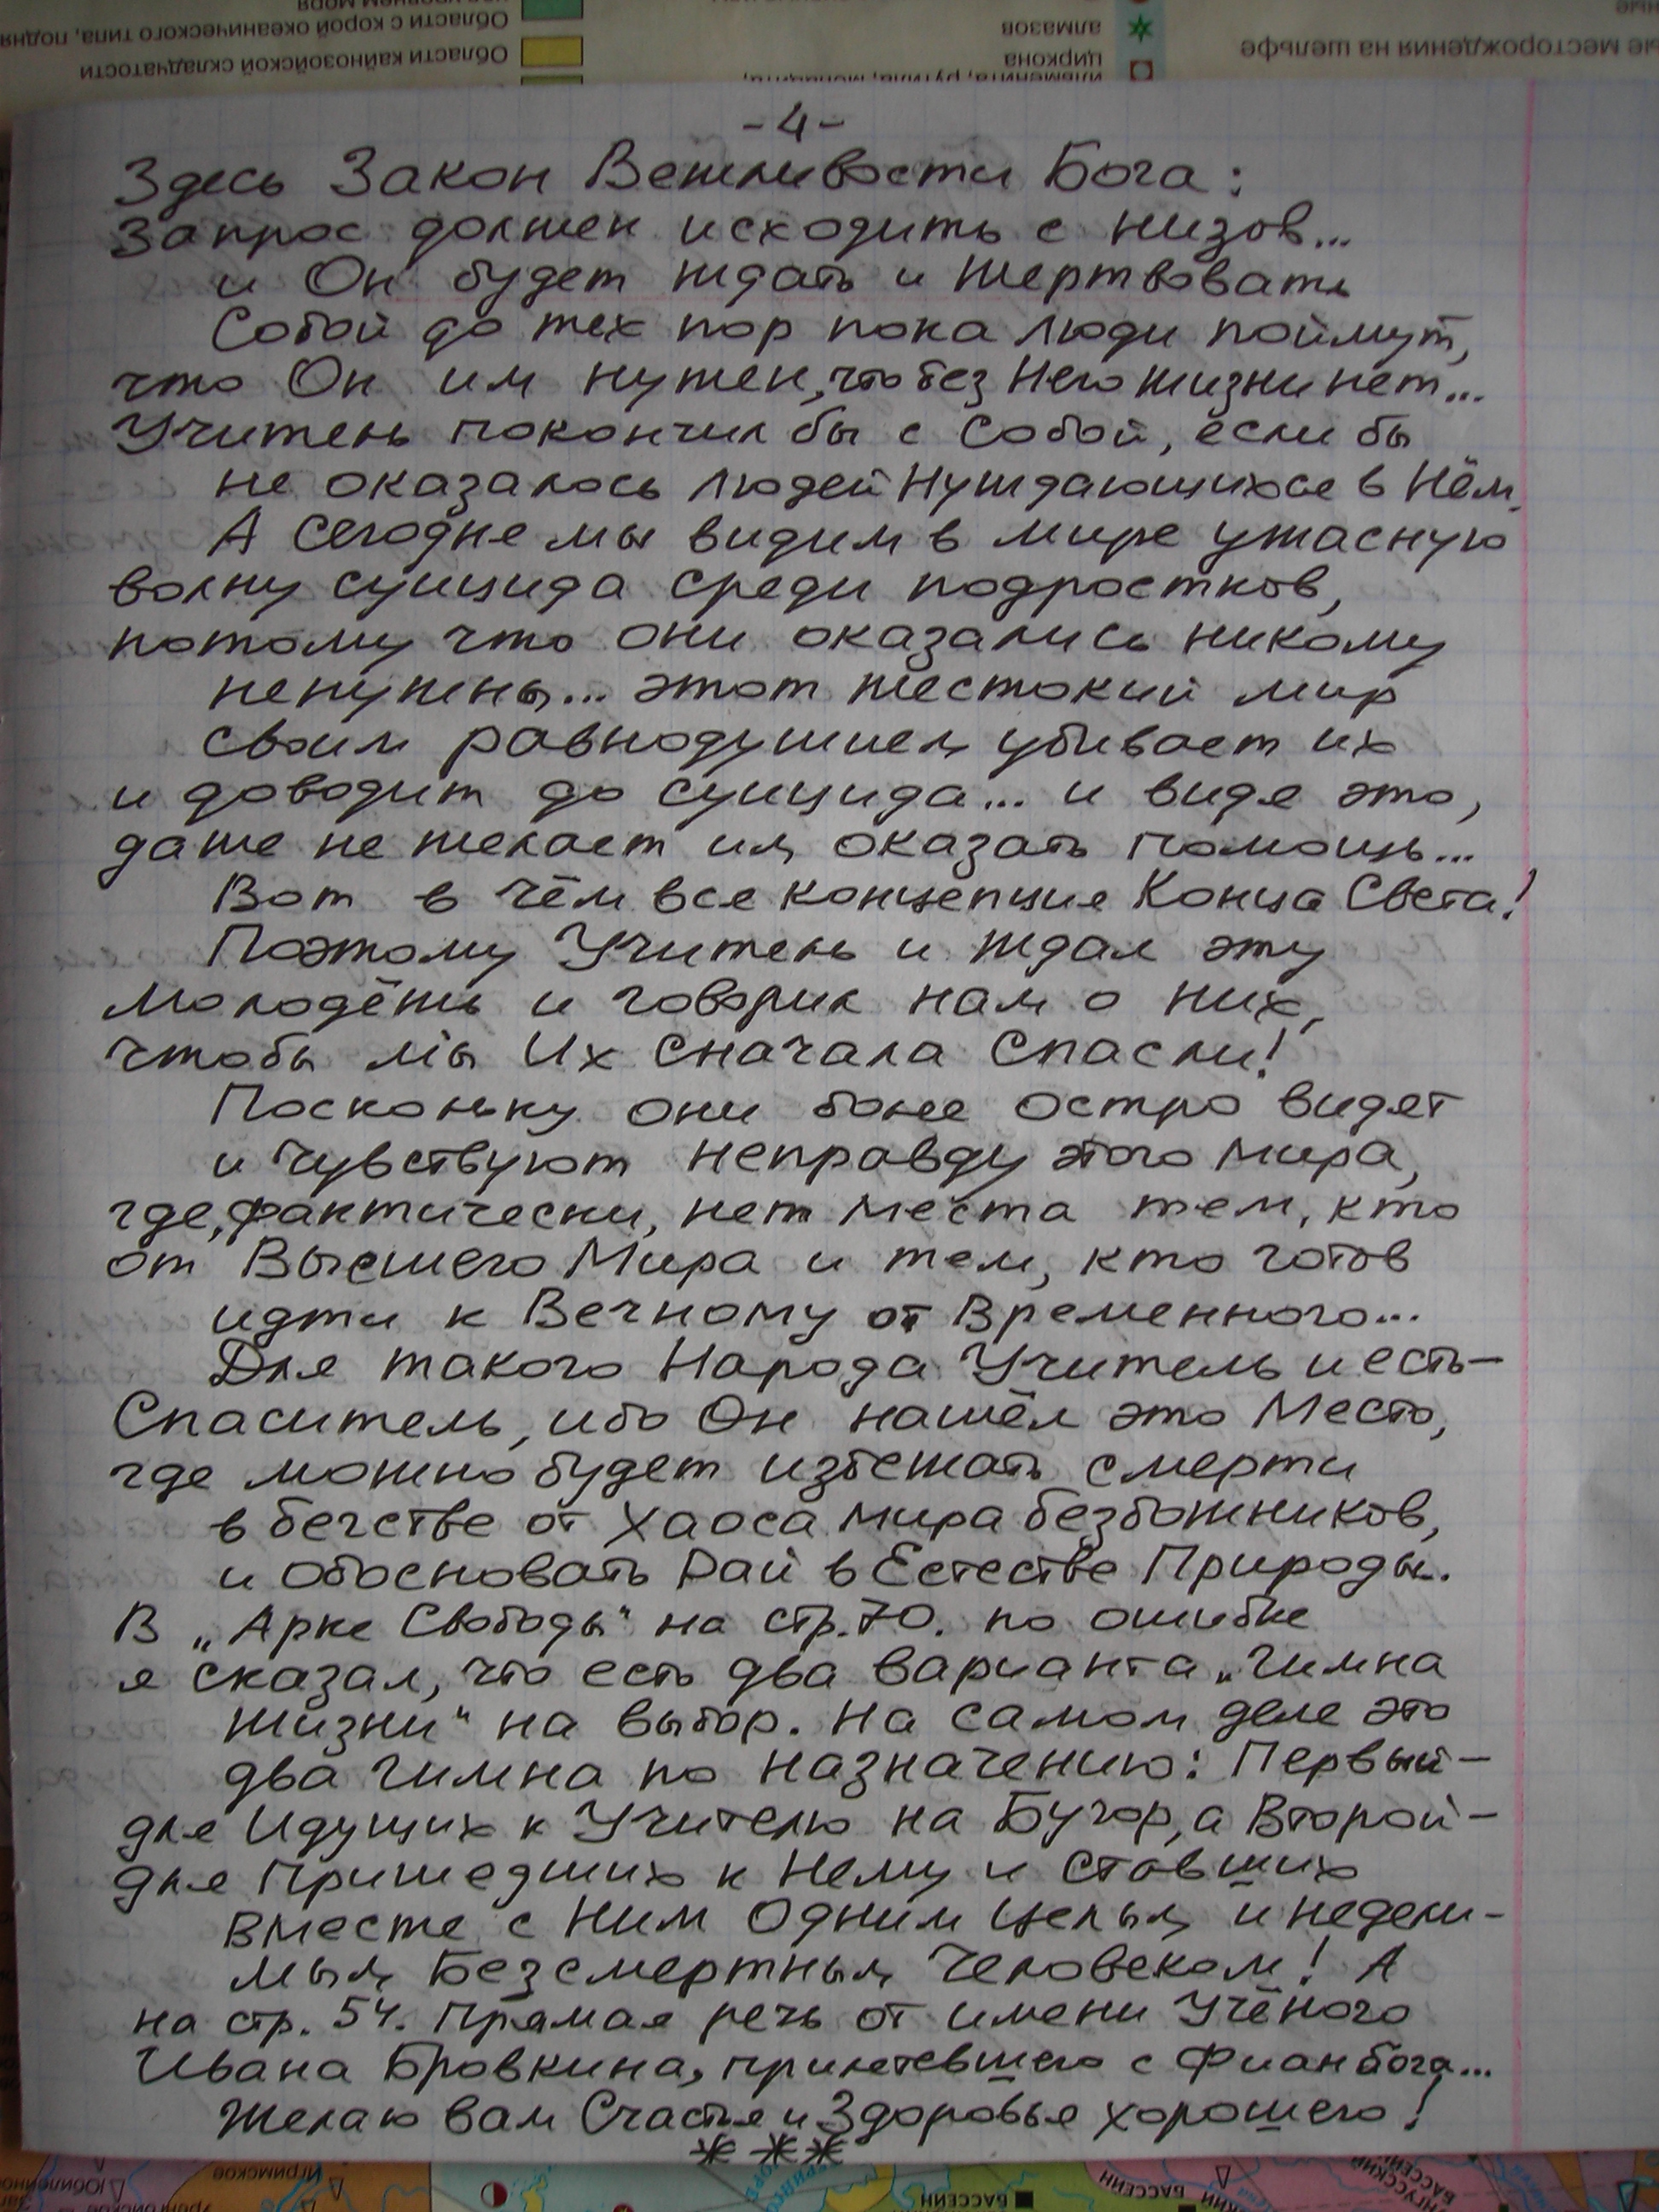 нью уровнем моря
Области с корой океанического типа, подня
Области кайнозойской складчатости
алмазов
циркона
ильменита, рутила, монацита,
ые месторождения на шельфе
-4-
Здесь Закон Вежливости Бога:
Запрос должен исходить с низов...
и Он будет ждать и жертвовать
Собой до тех пор пока люди поймут,
что Он им нужен, что без Него жизни нет...
Учитель покончил бы с Собой, если бы
не оказалось людей нуждающихся в Нём.
А сегодня мы видим в мире ужасную
волну суицида среди подростков,
потому что они оказались никому
ненужны... этот жестокий мир
своим равнодушием убивает их
и доводит до суицида... и видя это,
даже не желает им оказать помощь...
Вот в чём вся концепция Конца Света!
Поэтому Учитель и ждал эту
молодёжь и говорил нам о них,
чтобы мы Их сначала Спасли!
Поскольку они более остро видят
и чувствуют неправду этого мира,
где, фактически, нет места тем, кто
от Высшего Мира и тем, кто готов
идти к Вечному от Временного...
Для такого Народа Учитель и есть-
Спаситель, ибо Он нашёл это Место,
где можно будет избежать смерти
в бегстве от хаоса мира безбожников,
и обосновать Рай в Естестве Природы..
В „Арке Свободы" на стр.70. по ошибке
я сказал, что есть два варианта „Гимна
жизни" на выбор. На самом деле это
два гимна по назначению: Первый-
для Идущих к Учителю на Бугор, а Второй-
для Пришедших к Нему и ставших
вместе с Ним Одним целым и недели-
мым Безсмертным Человеком! А
на стр. 54. Прямая речь от имени Учёного
Ивана Бровкина, прилетевшего с Фиан бога...
Желаю вам Счастья и Здоровья хорошего!
* * *
Игримское
БАССЕЙН
БАССЕЙН